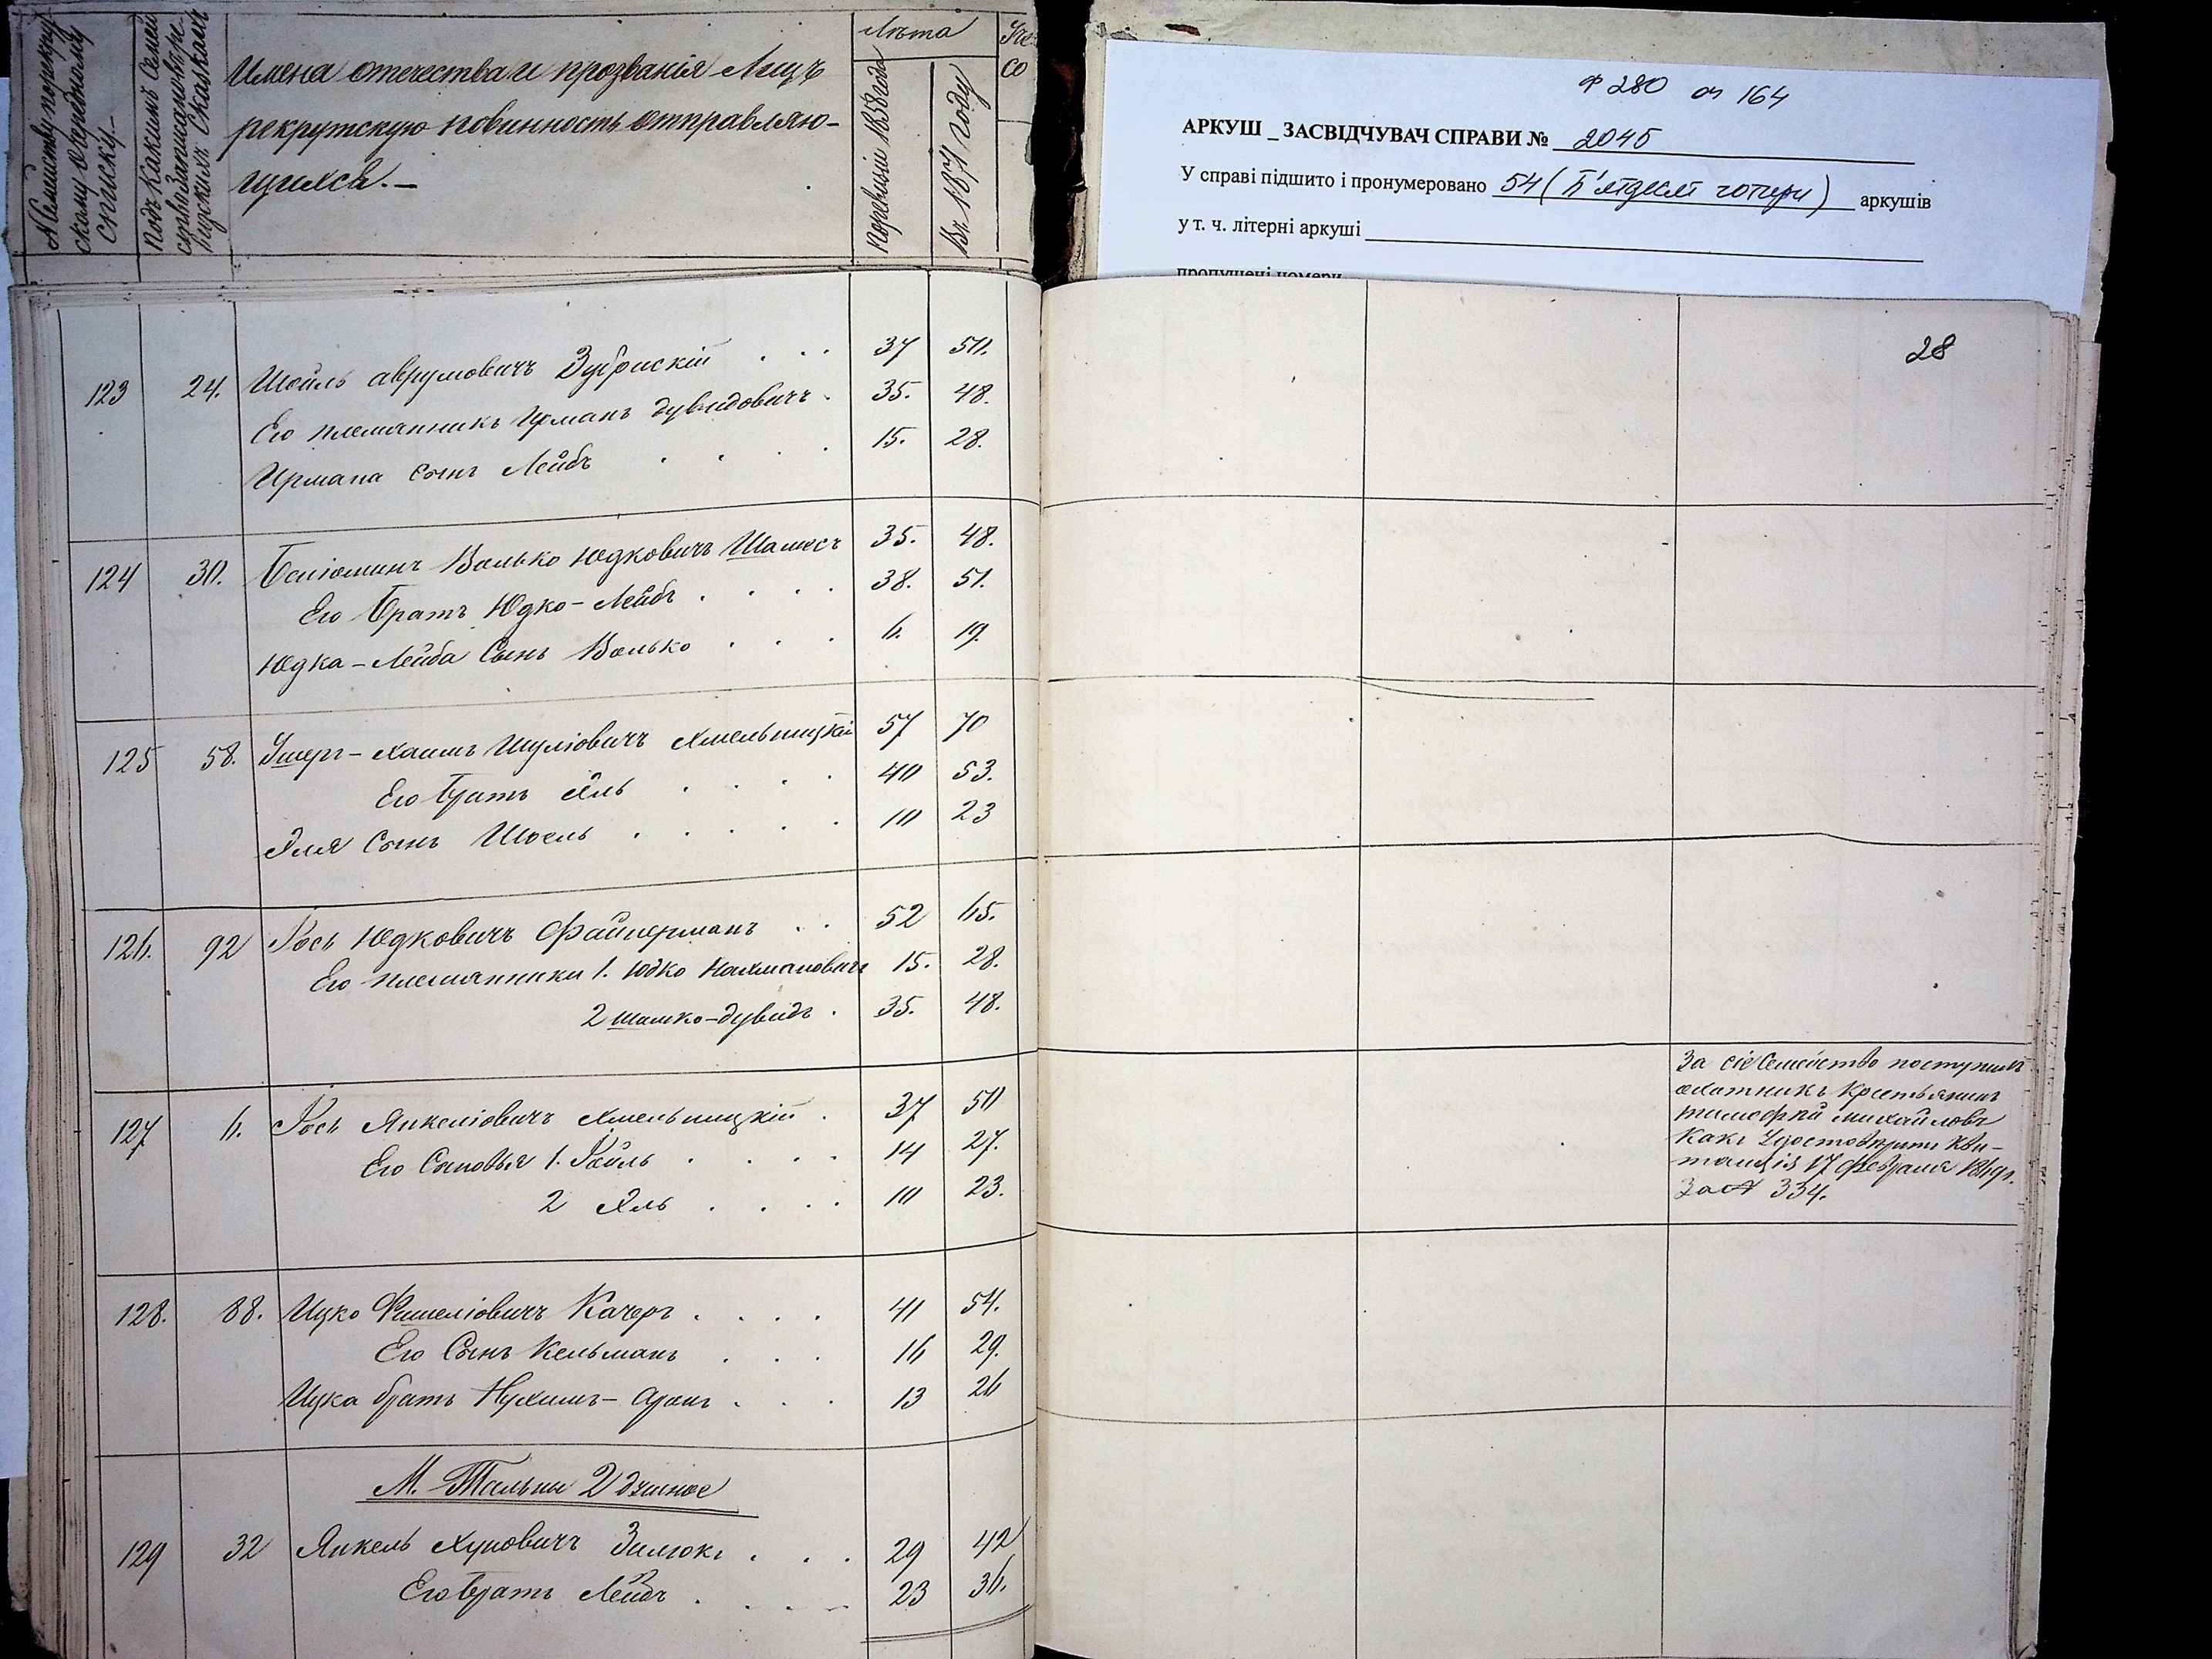 № Семейству по рекрут-
скому очередному
списку.—
Подъ какимъ № семей-
ство записано въ ре-
визскихъ сказкахъ
Имена отечества и прозванія Лицъ
рекрутскую повинность отправляю-
щихся.—
Лѣта
По ревизіи 1858 года
Въ 1871 году
со
Ф 280 оп 164
АРКУШ _ ЗАСВІДЧУВАЧ СПРАВИ № 2045
У справі підшито і пронумеровано 54 (П'ятдесят чотири) аркушів
у т. ч. літерні аркуші
пропущені номери
28
123 24. Шойль Аврумовичъ Зубрискій . . . 37 50.
Его племянникъ Ирманъ Дувидовичъ . 35. 48.
Ирмана сынъ Лейбъ . . . . 15. 28.
124 30. Беніоминъ Волько Юдковичъ Шамесъ 35. 48.
Его братъ Юдко-Лейбъ . . . . 38. 51.
Юдка-Лейба Сынъ Волько . . . 6. 19.
125 58. Ушеръ-Хаимъ Шуліовичъ Хмельницкій 57 70
Его братъ Эль . . . 40 53.
Эля Сынъ Шоель . . . . . 10 23
126. 92 Іось Юдковичъ Файнерманъ . . 52 65.
Его племянники 1. Юдко Нахмановичъ 15. 28.
2 Шамко-Дувидъ . 35. 48.
127 6. Іось Янкеліовичъ Хмельницкій . 37 50
Его Сыновья 1. Іойль . . . . 14 27.
2 Эль . . . . 10 23.
За сіе Семейство поступилъ
охотникъ Крестьянинъ
Тимофей Михайловъ
Какъ Удостовѣрити Кви-
танція 17 Февраля 1869 г.
За № 334.
128. 88. Ицко Фишеліовичъ Качеръ . . . . 41 54.
Его Сынъ Кельманъ . . . 16 29.
Ицка братъ Нухимъ-Аронъ . . . 13 26
М. Тальны 2 душное
129 32 Янкель Хуновичъ Зилюкъ . . . 29 42
Его братъ Лейбъ . . . . 23 36.